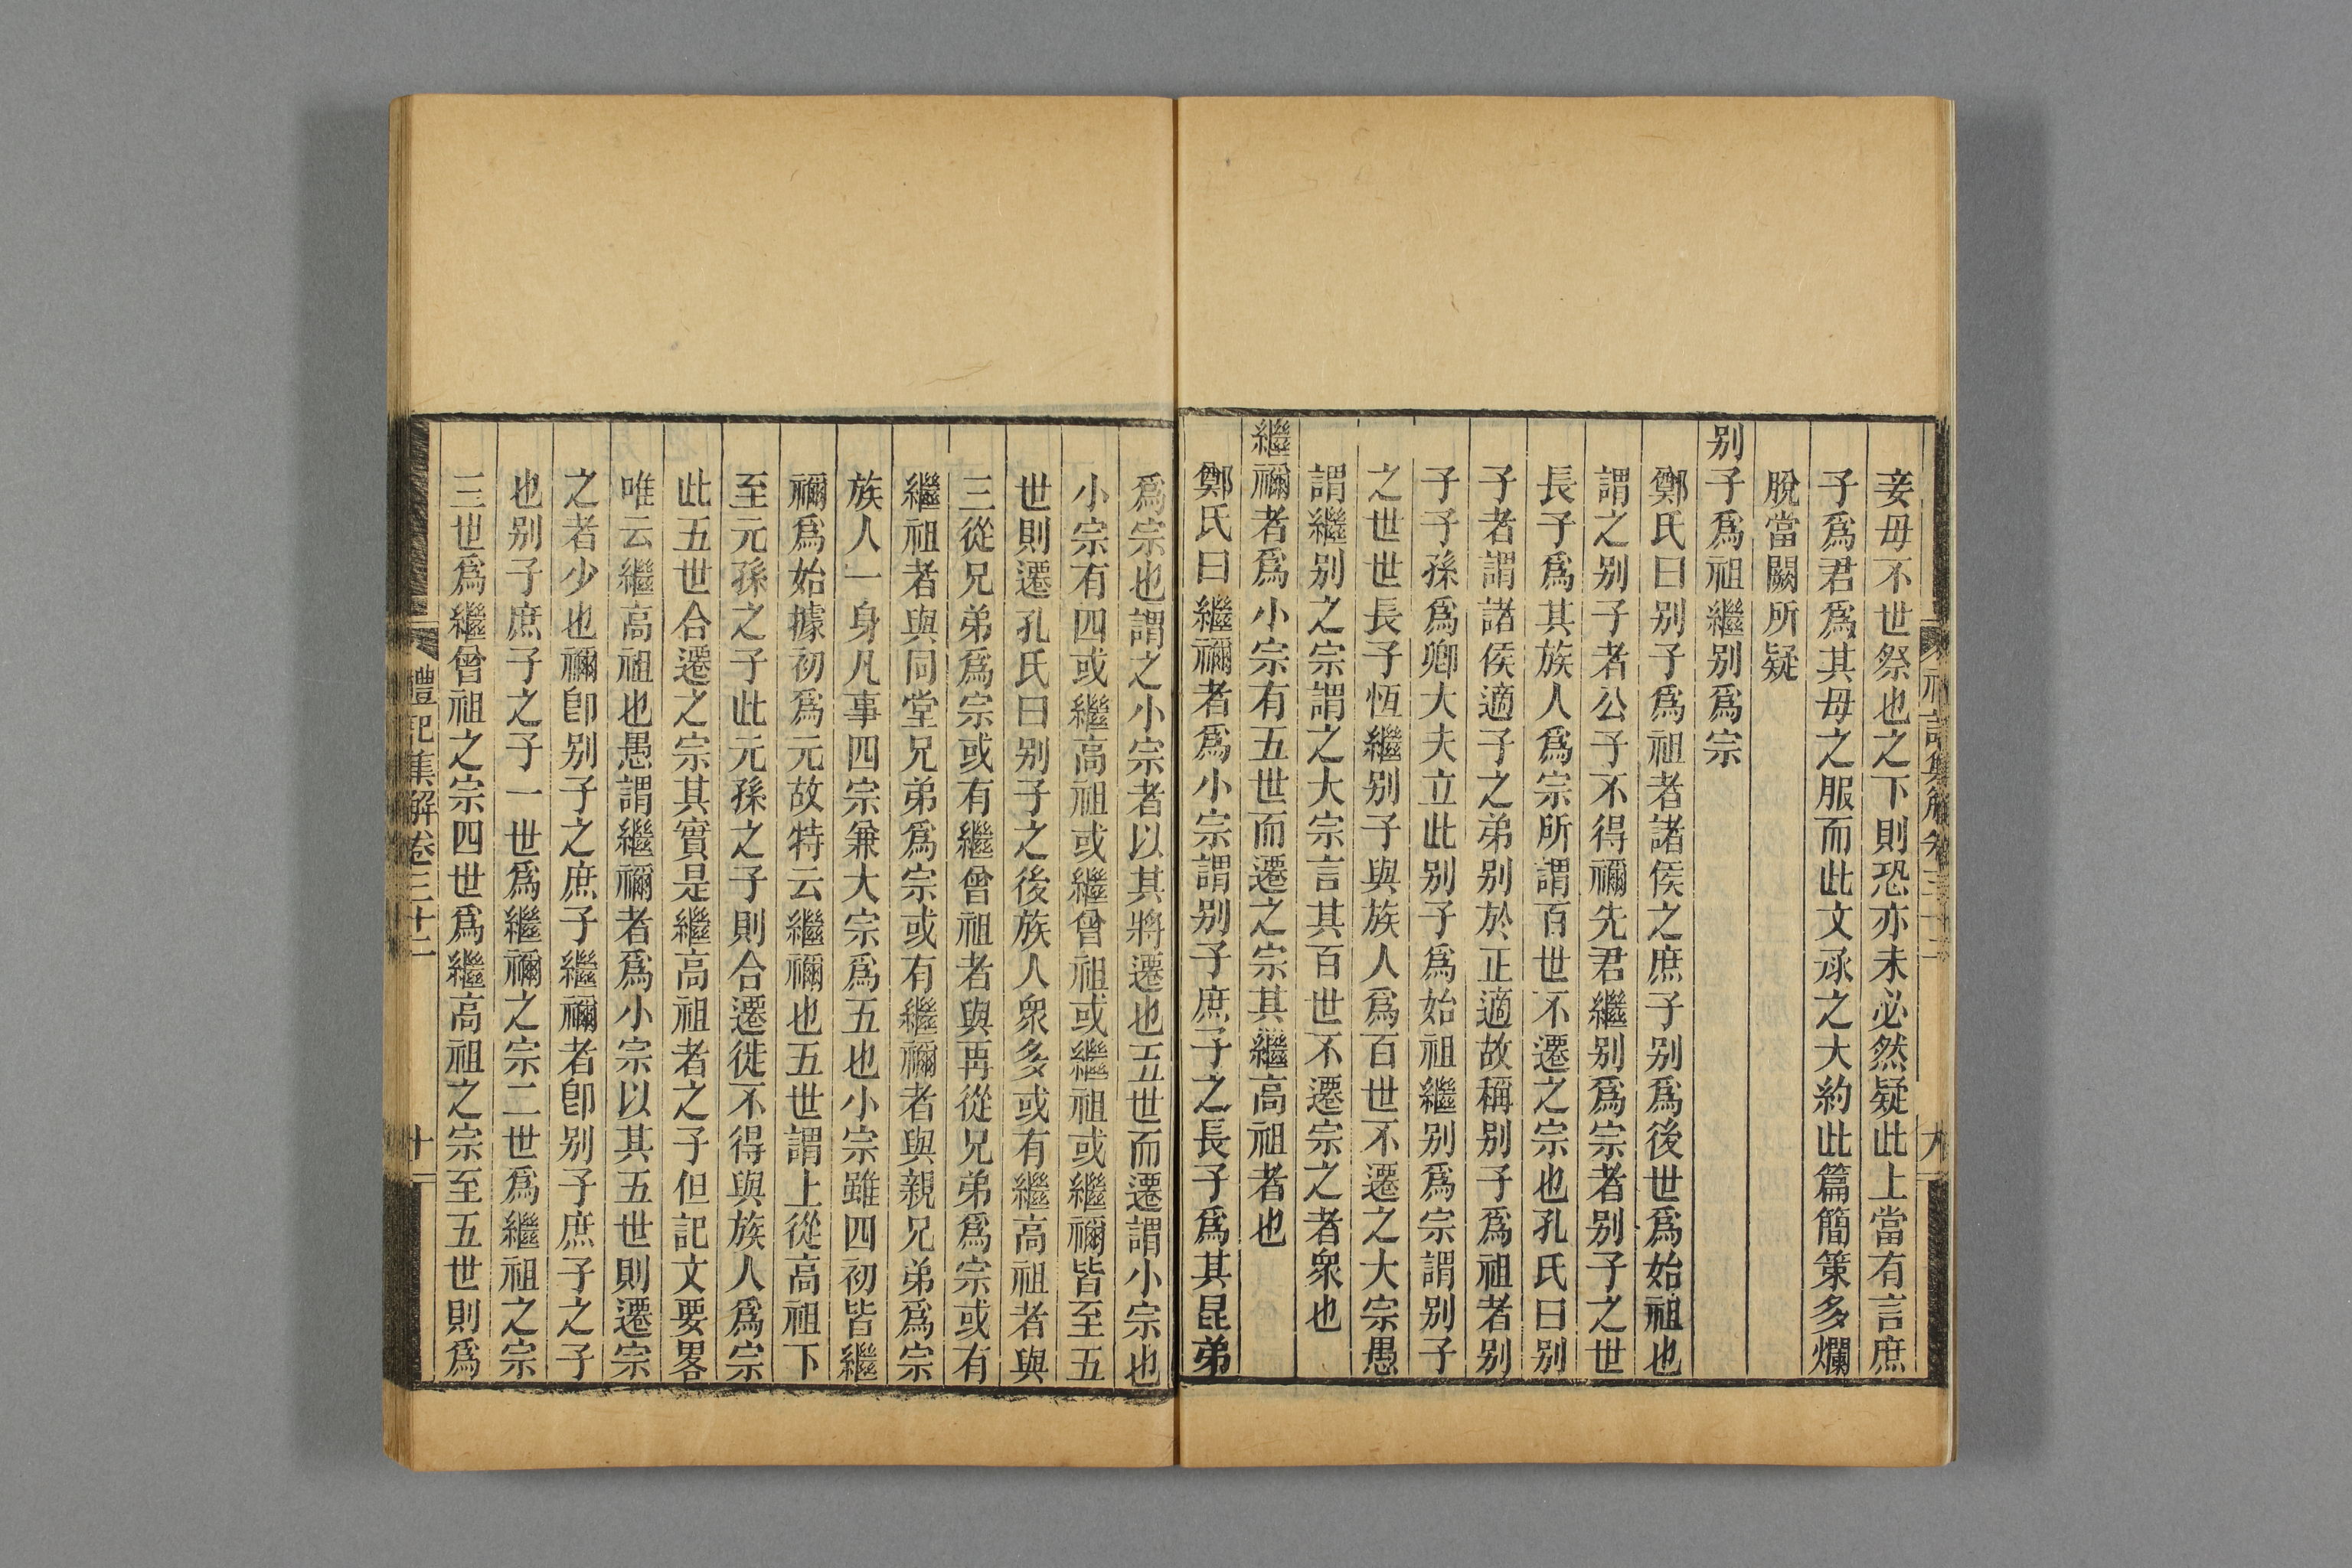 妾毋不世祭也之下則恐亦未必然疑此上當有言庶
子爲君爲其毋之服而此文承之大約此篇簡策多爛
脫當闕所疑
别子爲祖繼别爲宗
鄭氏曰别子爲祖者諸侯之庶子别爲後世爲始祖也
謂之别子者公子不得禰先君繼别爲宗者别子之世
長子爲其族人爲宗所謂百世不遷之宗也孔氏曰别
子者謂諸侯適子之弟别於正適故稱别子爲祖者别
子子孫爲卿大夫立此别子爲始祖繼别爲宗謂别子
之世世長子恆繼别子與族人爲百世不遷之大宗愚
謂繼别之宗謂之大宗言其百世不遷宗之者衆也
繼禰者爲小宗有五世而遷之宗其繼高祖者也
鄭氏曰繼禰者爲小宗謂别子庶子之長子爲其昆弟
爲宗也謂之小宗者以其將遷也五世而遷謂小宗也
小宗有四或繼高祖或繼曾祖或繼祖或繼禰皆至五
世則遷孔氏曰别子之後族人衆多或有繼高祖者與
三從兄弟爲宗或有繼曾祖者與再從兄弟爲宗或有
繼祖者與同堂兄弟爲宗或有繼禰者與親兄弟爲宗
族人一身凡事四宗兼大宗爲五也小宗雖四初皆繼
禰爲始據初爲元故特云繼禰也五世謂上從高祖下
至元孫之子此元孫之子則合遷徙不得與族人爲宗
此五世合遷之宗其實是繼高祖者之子但記文要畧
唯云繼高祖也愚謂繼禰者爲小宗以其五世則遷宗
之者少也禰卽别子之庶子繼禰者卽别子庶子之子
也别子庶子之子一世爲繼禰之宗二世爲繼祖之宗
三世爲繼曾祖之宗四世爲繼高祖之宗至五世則爲
禮記集解卷三十二
十